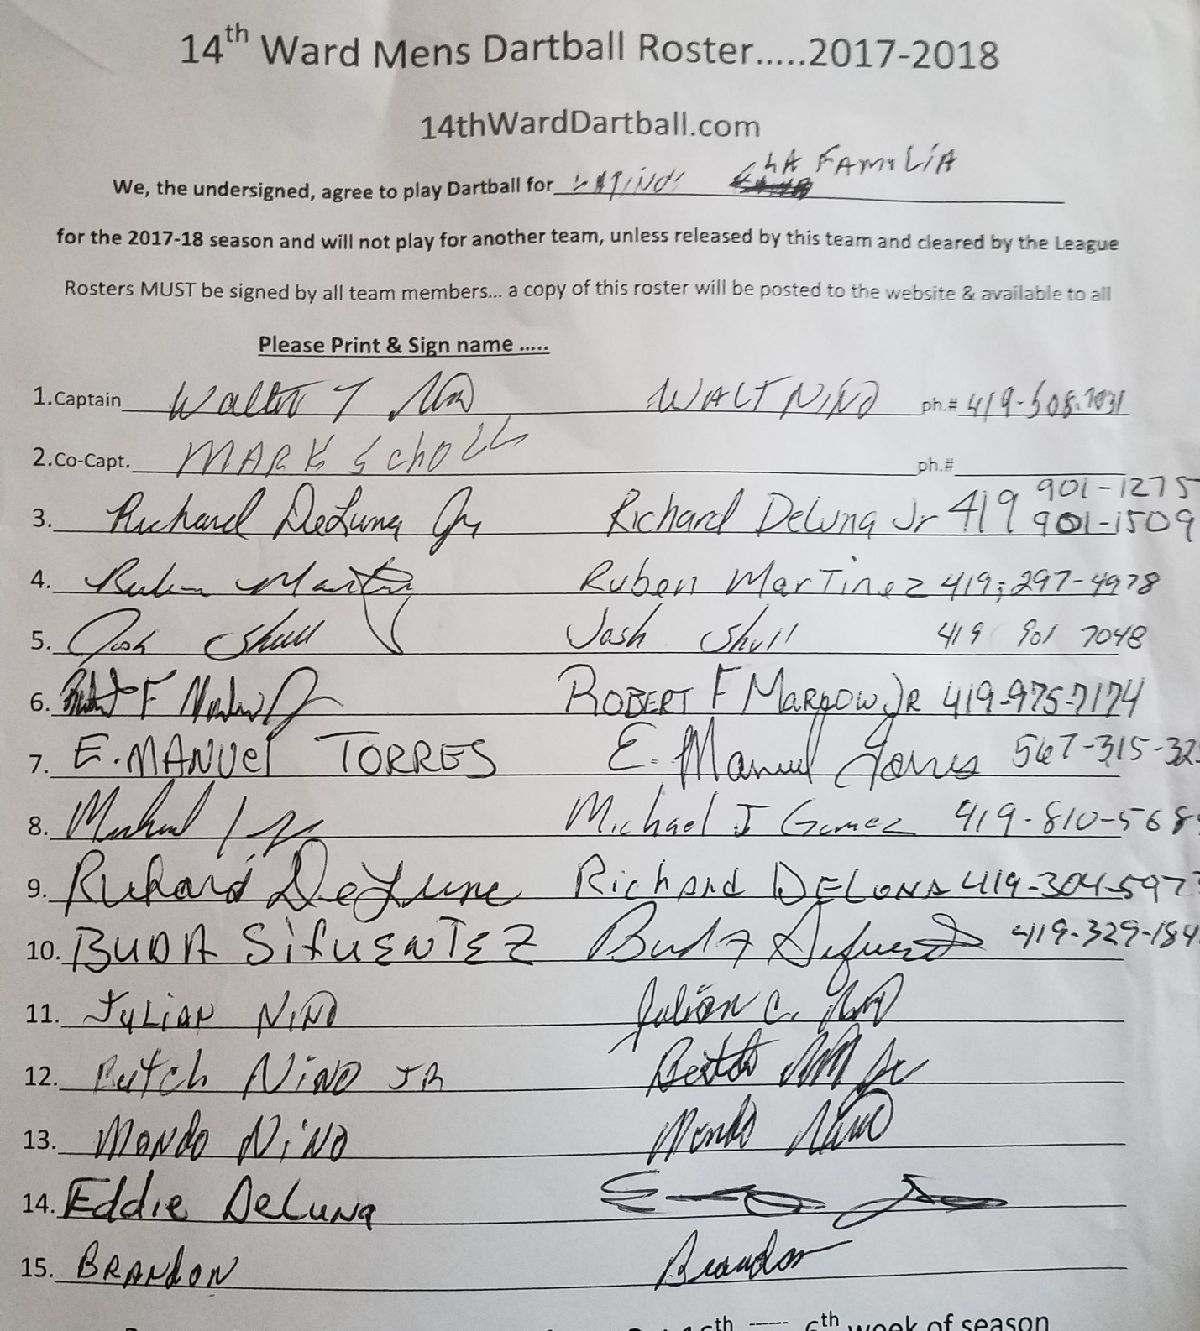 14th Ward Mens Dartball Roster.....2017-2018
14thWardDartball.com
We, the undersigned, agree to play Dartball for LATINOS LA FAMILIA
for the 2017-18 season and will not play for another team, unless released by this team and cleared by the League
Rosters MUST be signed by all team members... a copy of this roster will be posted to the website & available to all
Please Print & Sign name .....
1.Captain Walter T Nino WALT NINO ph.# 419-508-7031
2.Co-Capt. MARK SCHOLL ph.#
901-1275
3. Richard DeLuna Jr Richard DeLuna Jr 419 901-1509
4. Ruben Martinez Ruben Martinez 419-297-4978
5. Josh Shull Josh Shull 419 901 7048
6. Robert F Marrow Jr ROBERT F MARROW JR 419-975-7174
7. E. MANUEL TORRES E. Manuel Torres 567-315-32
8. Michael Michael J Gomez 419-810-568
9. Richard DeLuna Richard DELUNA 419-304-597
10. BUDA SIFUENTEZ Buda Sifuentez 419-329-184
11. JULIAN NINO Julian C. Nino
12. Butch NINO JR Butch Nino Jr
13. MONDO NINO Mondo Nino
14. Eddie DeLuna
15. BRANDON Brandon
6th week of season